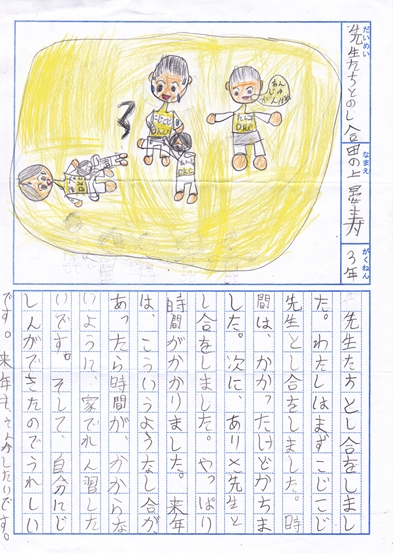 だいめい
先生たちとのし合
なまえ
田の上 晏寿
がくねん
3年
あんじゅがんばれ
DKC
こじこじ
先生たちとし合をしまし
た。わたしはまずこじこじ
先生とし合をしました。時
間は、かかったけどかちま
した。次に、ありさ先生と
し合をしました。やっぱり
時間がかかりました。来年
は、こういうようなし合が
あったら時間が、かからな
いように、家でれん習した
いです。そして、自分にじ
しんができたのでうれしい
です。来年も、さんかしたいです。